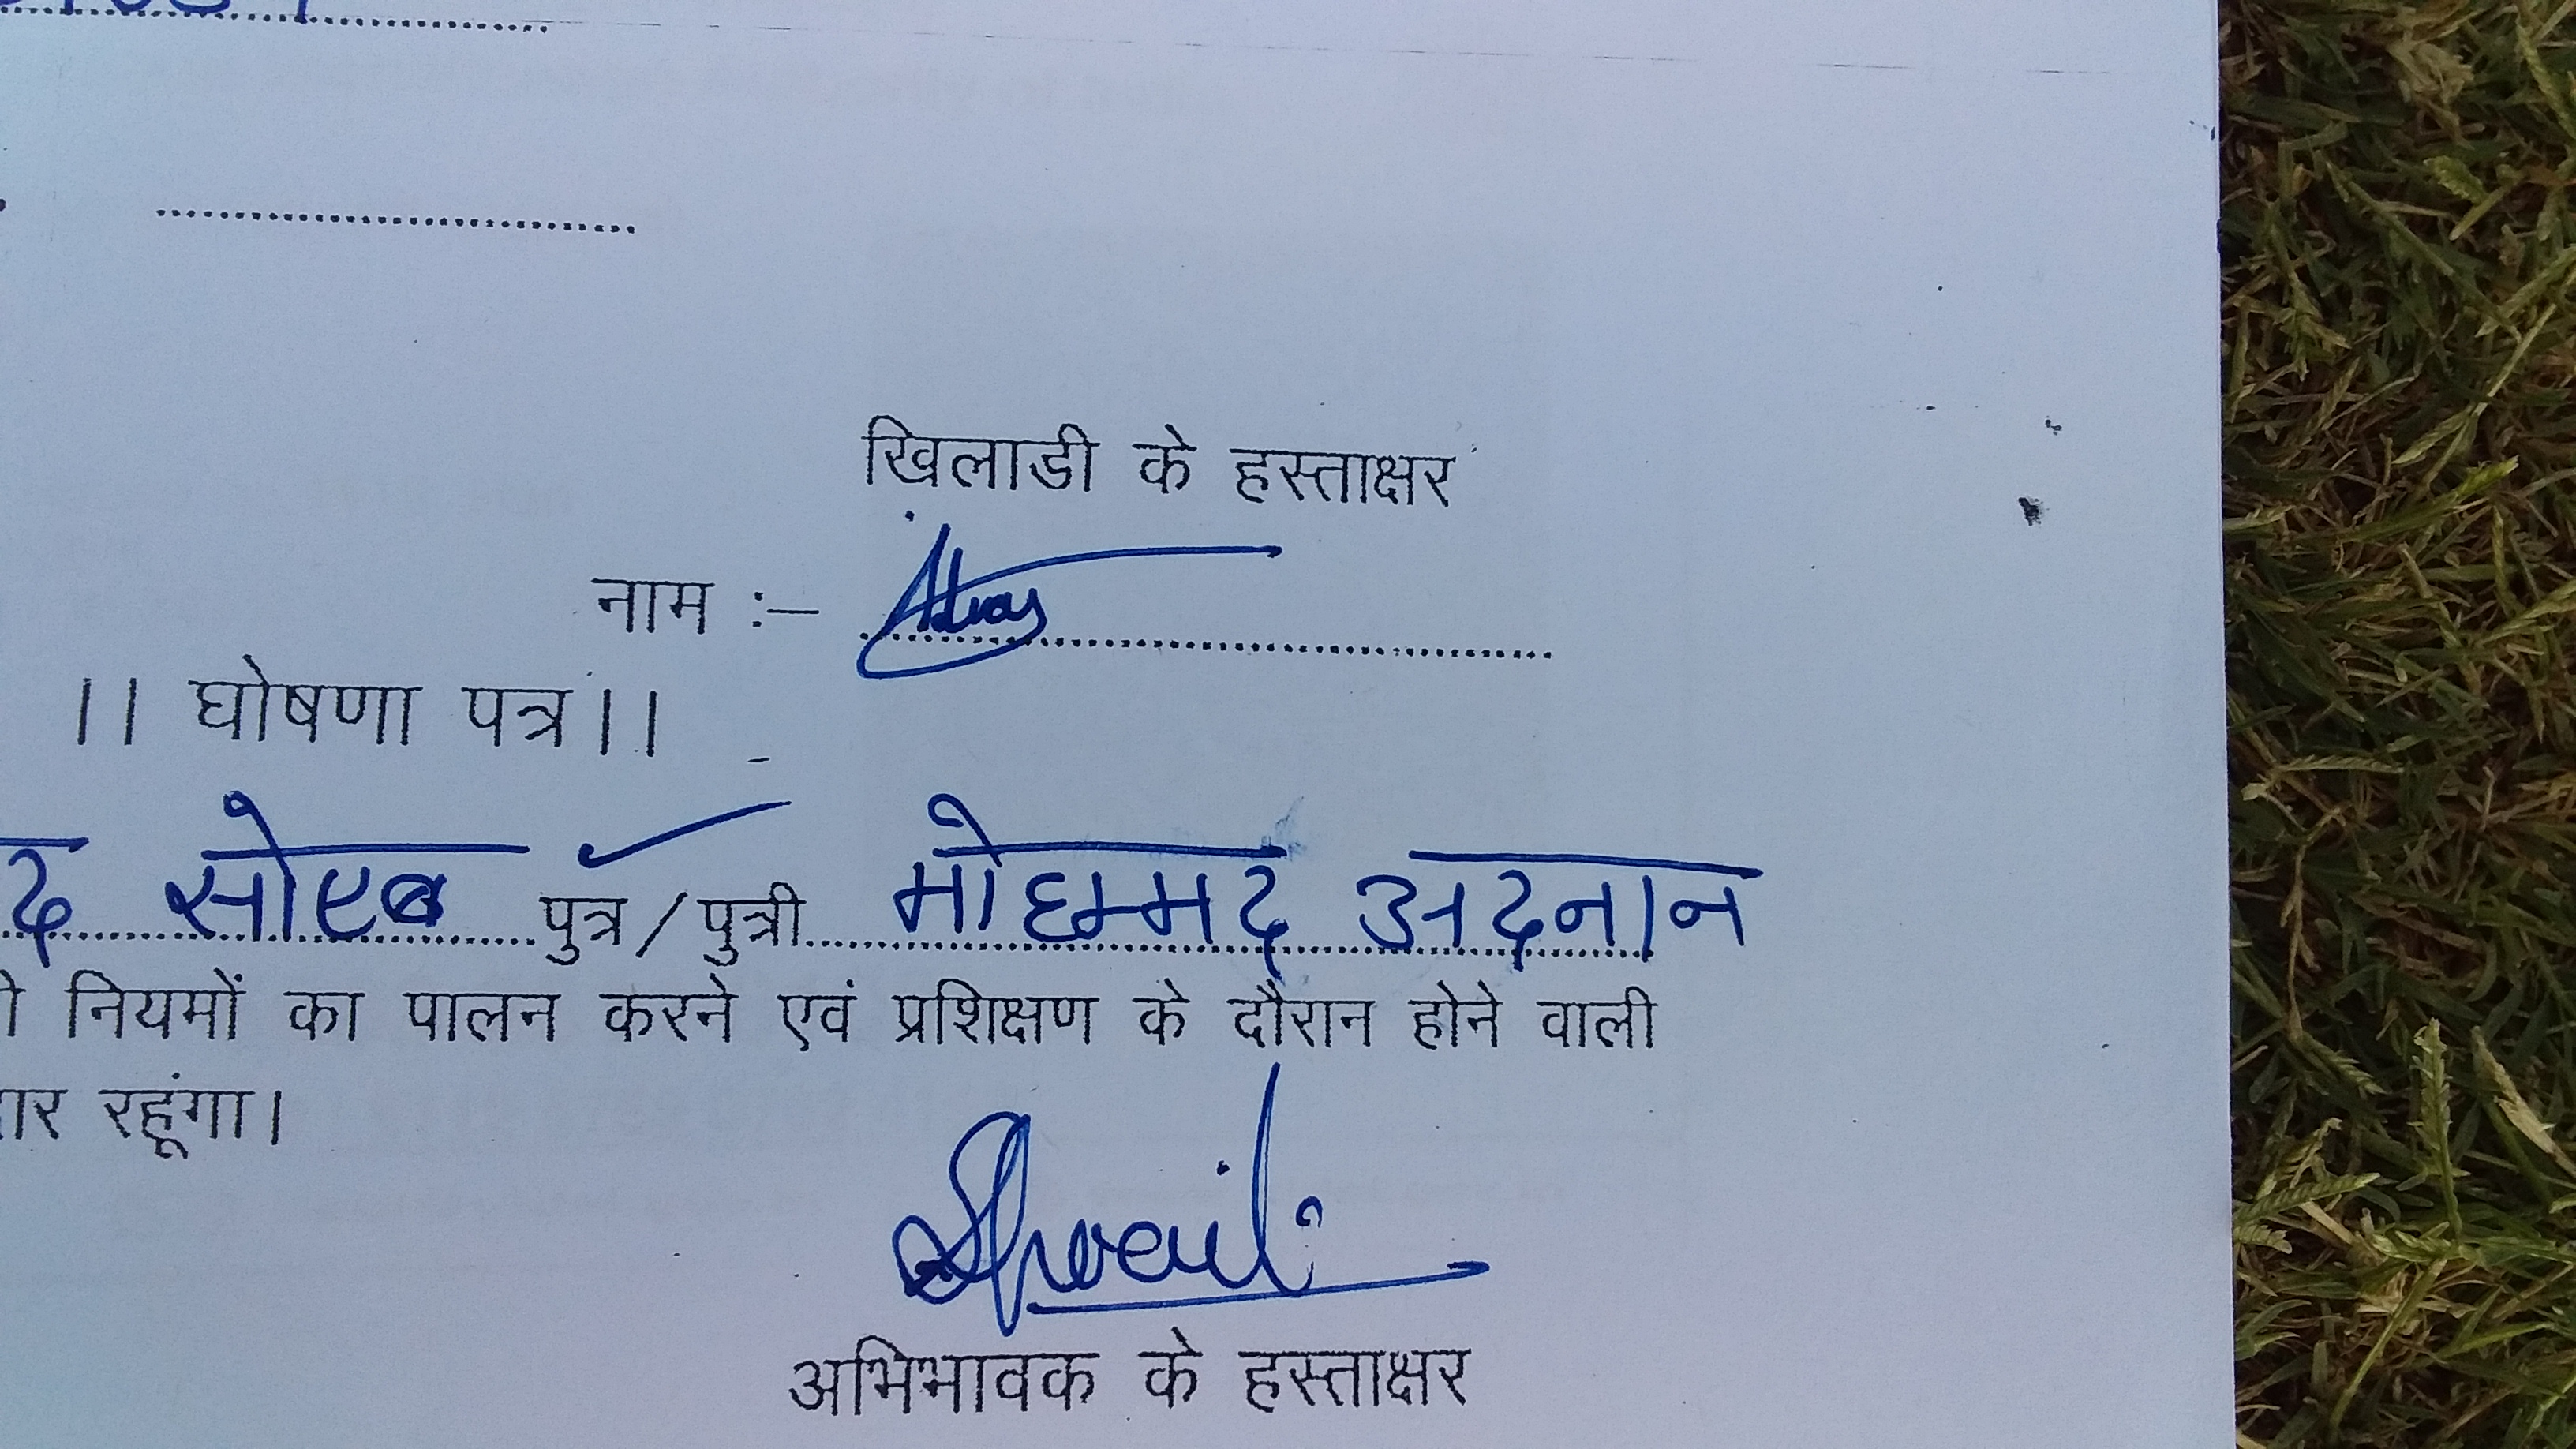 खिलाडी के हस्ताक्षर
नाम :–
।। घोषणा पत्र।।
द सोएब पुत्र/पुत्री मोहम्मद अदनान
नियमों का पालन करने एवं प्रशिक्षण के दौरान होने वाली
रहूंगा।
अभिभावक के हस्ताक्षर